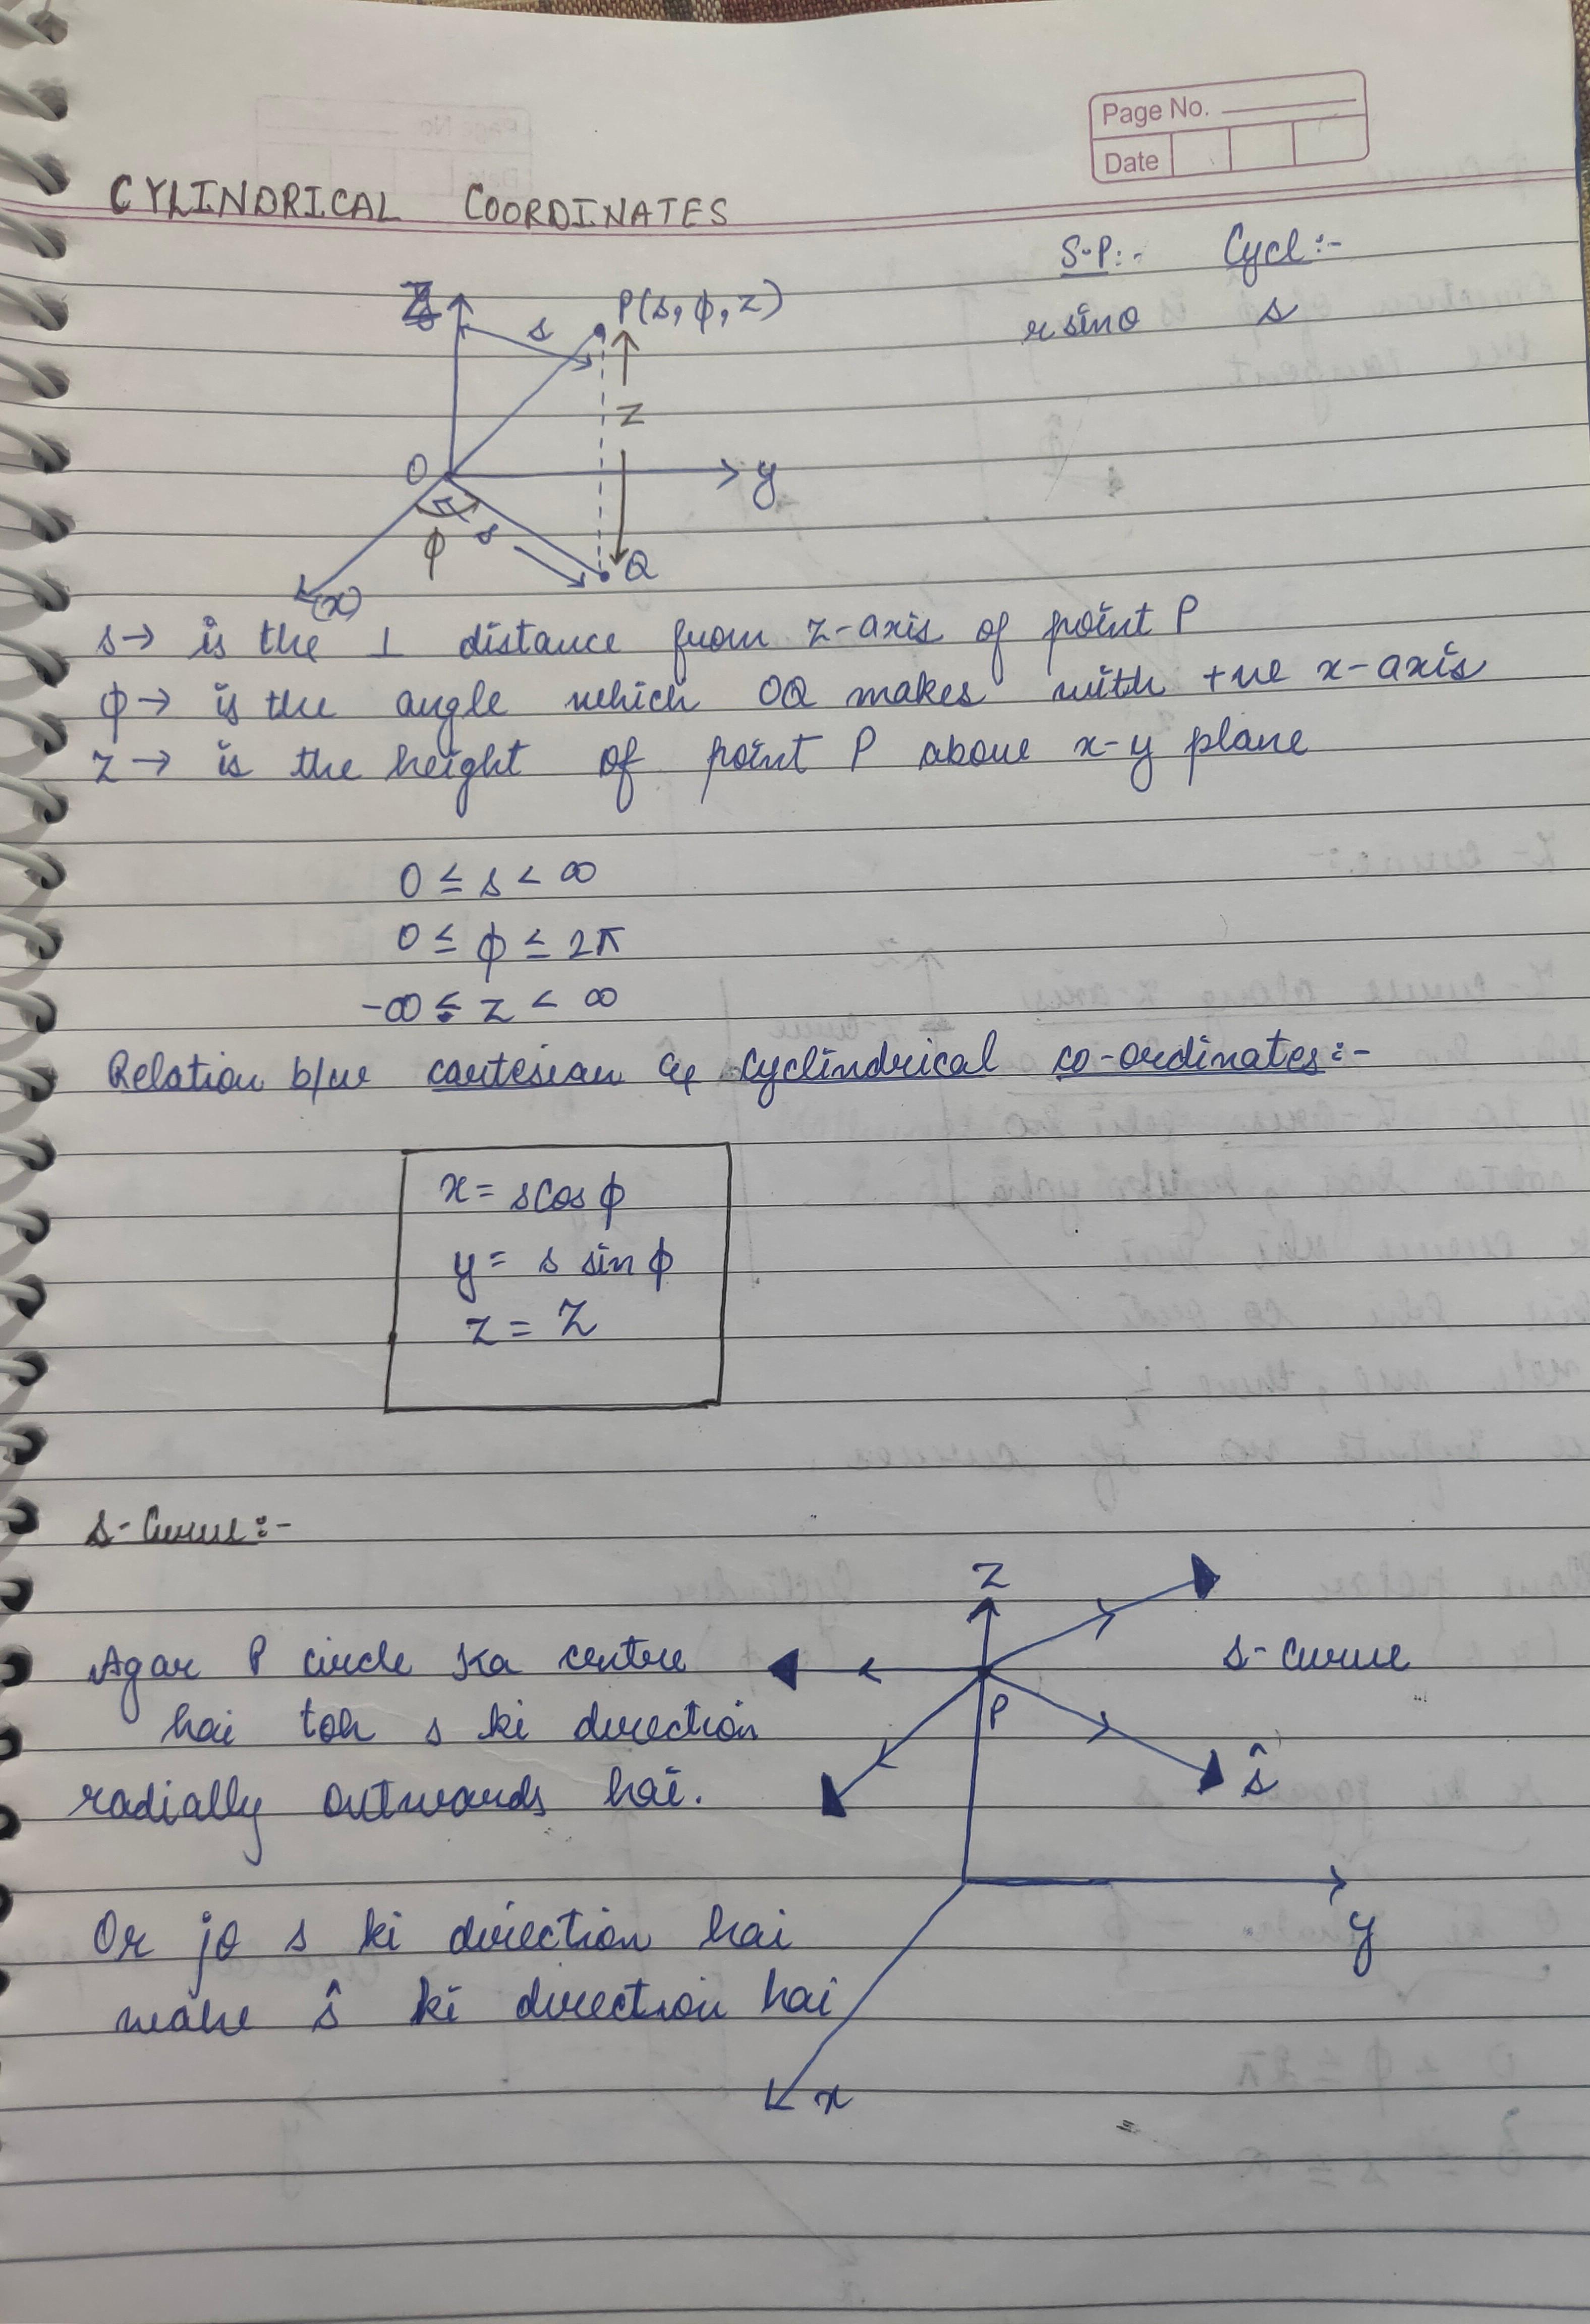 Page No.
Date
CYLINDRICAL COORDINATES
S.P:- Cycl:-
r sinθ s
Z
s
P(s, ϕ, z)
z
O
y
ϕ
s
Q
(x)
s → is the ⊥ distance from z-axis of point P
ϕ → is the angle which OQ makes with +ve x-axis
z → is the height of point P above x-y plane
0 ≤ s < ∞
0 ≤ ϕ ≤ 2π
-∞ ≤ z < ∞
Relation b/w cartesian & cyclindrical co-ordinates:-
x = s cos ϕ
y = s sin ϕ
z = Z
s-Curve:-
z
Agar P circle ka centre
s-curve
P
hai toh s ki direction
ŝ
radially outwards hai.
Or jo s ki direction hai
y
wahe ŝ ki direction hai
x